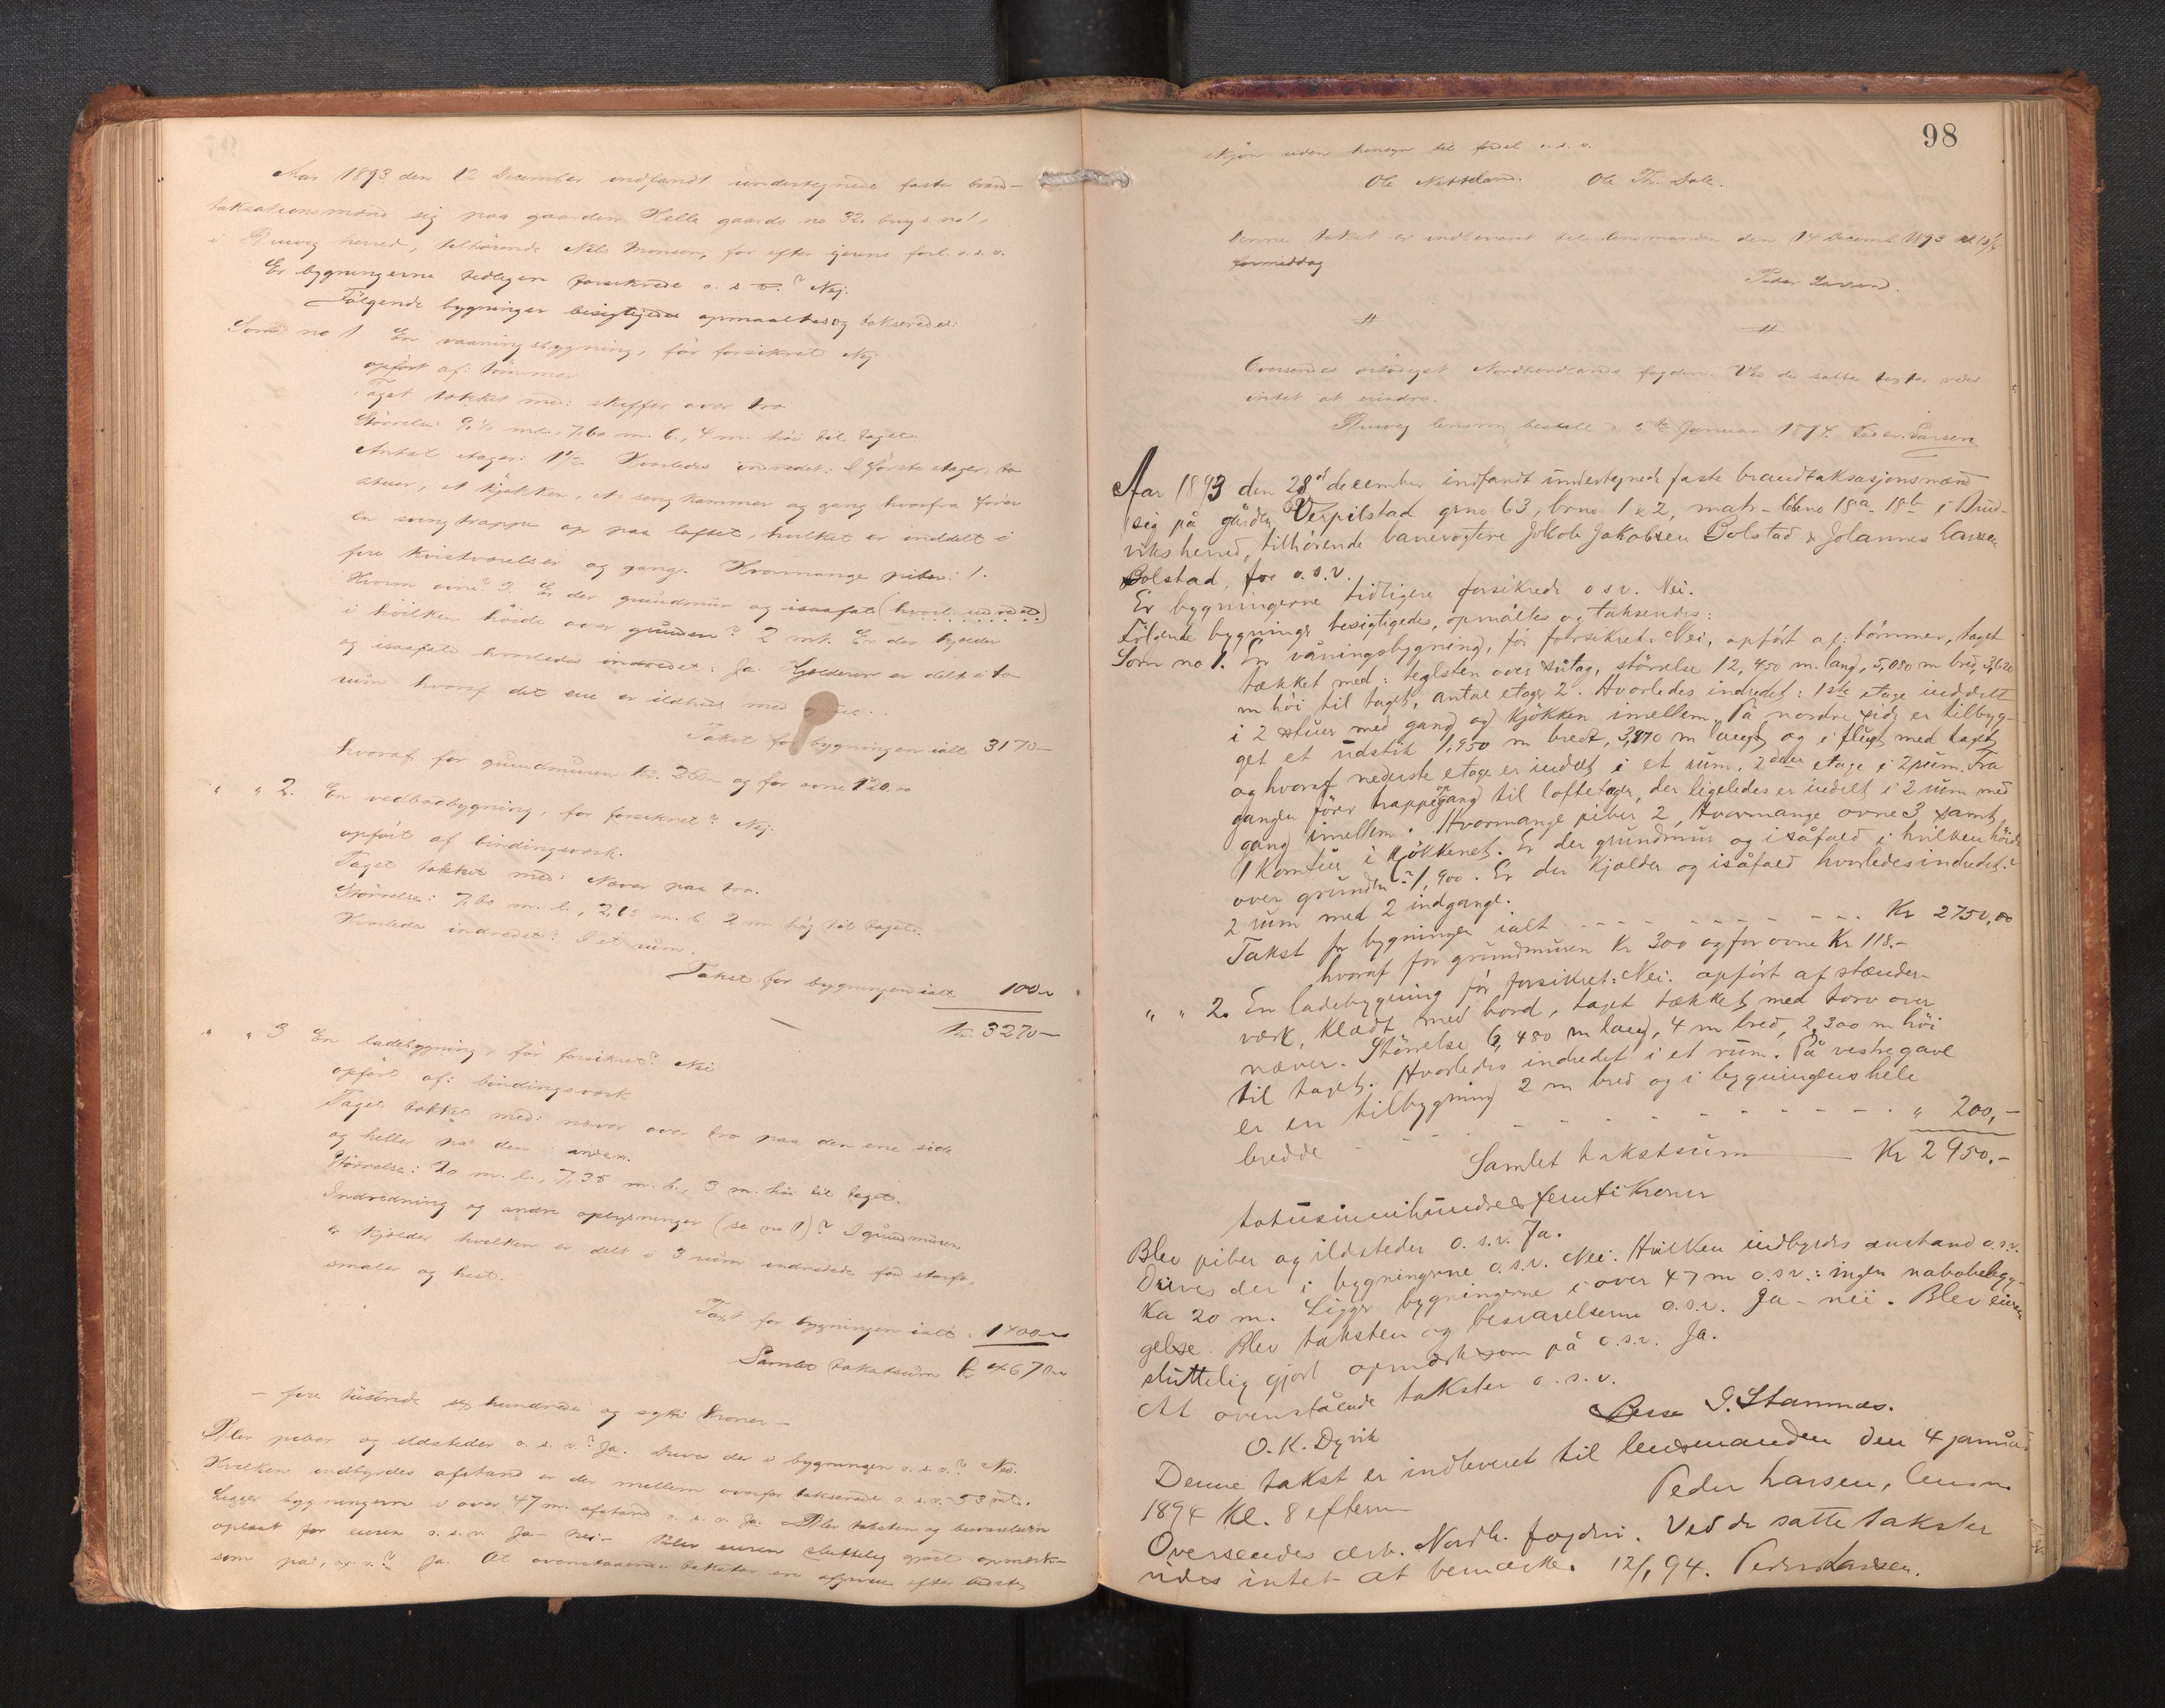 Aar 1893 den 12 December indfandt undertegnede faste brand-
taksationsmænd sig paa gaarden Helle gaards no 32. brugs no 1,
i Bruvig herred, tilhørende Nils Monsen, for efter igjens forl. o.s.v.
Er bygningerne tidligere forsikrede o.s.v.? Nej.
Følgende bygninger besigtigedes opmaaltes og takseredes:
Som no 1 En vaaningsbygning, før forsikret Nej
opført af: tømmer
Taget tækket med: skiffer over tro
Størrelse: 9.40 m. l., 7.60 m. b., 4 m. høi til taget.
Antal etager: 1½. Hvorledes indredet: I første etager, to
stuer, et kjøkken, et sengkammer og gang hvorfra fører
en svingtrappe op paa loftet, hvilket er inddelt i
fire kvistværelser og gang. Hvormange piber: 1.
Hvorm ovne? 3. Er der grundmur og isaafat (hvorl. indredet)
i hvilken høide over grunden? 2 mt. Er der kjælder
og isaafald hvorledes indredet: Ja. Kjælderen er delt i to
rum hvoraf det ene er ildhus med
Takst for bygningen ialt 3170 –
hvoraf for grundmuren kr. 250 – og for ovne 120.00
" " 2. En vedbodbygning, før forsikret? Nej.
opført af bindingsverk.
Taget tækket med: Næver paa tro.
Størrelse: 7.60 m. l., 2,65 m. b. 2 m. høj til taget.
Hvorledes indredet? I et rum.
Takst for bygningen ialt 100 –
Kr. 3270 –
" " 3 En ladebygning, før forsikret? Nei
opført af: bindingsverk
Taget tækket med: næver over tro paa den ene side
og heller på den anden.
Størrelse: 20 m. l., 7,35 m. b., 3 m. høi til taget.
Indredning og andre oplysninger (se no 1)? I grundmuren
er kjælder hvilken er delt i 3 rum indredede for storfæ,
smaler og hest.
Taxt for bygningen ialt 1400 –
Samlet takstsum kr 4670 –
– fire tusinde sex hundrede og sytti kroner –
Blev piber og ildsteder o.s.v.? Ja. Drives der i bygningen o.s.v.? Nei.
Hvilken indbyrdes afstand er der mellem ovenfor takserede o.s.v. 53 mt.
Ligger bygningerne i over 47 m. afstand o.s.v. Ja. Blev taksten og besvarelserne
oplæst for eieren o.s.v. Ja – nei – Blev eieren sluttelig gjort opmærk-
som på, o.s.v.? Ja. At ovenstaaende takster ere afgivne efter bedste
98
skjøn uden hensyn til fordel o.s.v.
Ole Nætteland. Ole Th. Dale.
Denne takst er indleveret til lensmanden den 14 Decemb 1893 kl 10½
formiddag
Peder Larsen.
# #
Oversendes ærbødigst Nordhordlands fogderi. Ved de satte taxter vides
intet at erindre.
Bruvig lensm. bestill. Januar 1894. Peder Larsen
Aar 1893 den 28d december indfandt undertegnede faste brandtaksasjonsmænd
sig på gården Verpilstad grno 63, brno 1 & 2, matr-løbeno 18a 18b i Brud-
viks herred, tilhørende banevogtere Jakob Jakobsen Bolstad & Johannes Larsen
Bolstad, for o.s.v.
Er bygningerne tidligere forsikrede o s v. Nei.
Følgende bygninger besigtigedes, opmåltes og takseredes:
Som no 1. En våningsbygning, før forsikret: Nei, opført af: tømmer, taget
tækket med: teglsten over sutag, størrelse 12,450 m. lang, 5,080 m bred, 3,620
m høi til taget, antal etager 2. Hvorledes indredet: 1ste etage inddelt
i 2 stuer med gang og kjøkken imellem. På nordre side er tilbyg-
get et udstik 1,950 m bredt, 3,970 m langt og i flugt med taget
og hvoraf nederste etage er inddelt i et rum. 2den etage i 2 rum. Fra
gangen fører trappegang op til loftetager, der ligeledes er indelt i 2 rum med
gang imellem. Hvormange piber 2, Hvormange ovne 3 samt
1 komfur i kjøkkenet. Er der grundmur og isåfald i hvilken høide
over grunden? 1,900. Er der kjælder og isåfald hvorledes indredet?
2 rum med 2 indgange.
Takst for bygningen ialt - - - - - - - - - Kr 2750,00
hvoraf for grundmuren kr 300 og for ovne Kr 118.-
" " 2. En ladebygning før forsikret: Nei. opført af stænder-
værk, klædt med bord, taget tækket med torv over
næver. Størrelse 6,480 m lang, 4 m bred, 2,300 m høi
til taget. Hvorledes indredet i et rum. På vestre gavl
er en tilbygning 2 m bred og i bygningens hele
bredde - - - - - - - - - - " 200,-
Samlet takstsum — Kr 2950.-
totusinnihundrede femti Kroner
Blev piber og ildsteder o.s.v. Ja.
Drives der i bygningerne o.s.v. Nei. Hvilken indbyrdes avstand o.s.v.
ka 20 m. Ligger bygningerne i over 47 m o.s.v.: ingen nabobebyg-
gelse. Blev taksten og besvarelserne o.s.v. Ja – nei. Blev eieren
sluttelig gjort opmærksom på o.s.v. Ja.
At ovenstående takster o.s.v.
O. K. Dyvik Besse G. Stamnæs.
Denne takst er indleveret til lensmanden den 4 januar
1894 kl. 8 efterm Peder Larsen, lensm.
Oversendes ærb. Nordh. fogderi. Ved de satte takster
vides intet at bemærke. 12/1 94. Peder Larsen.